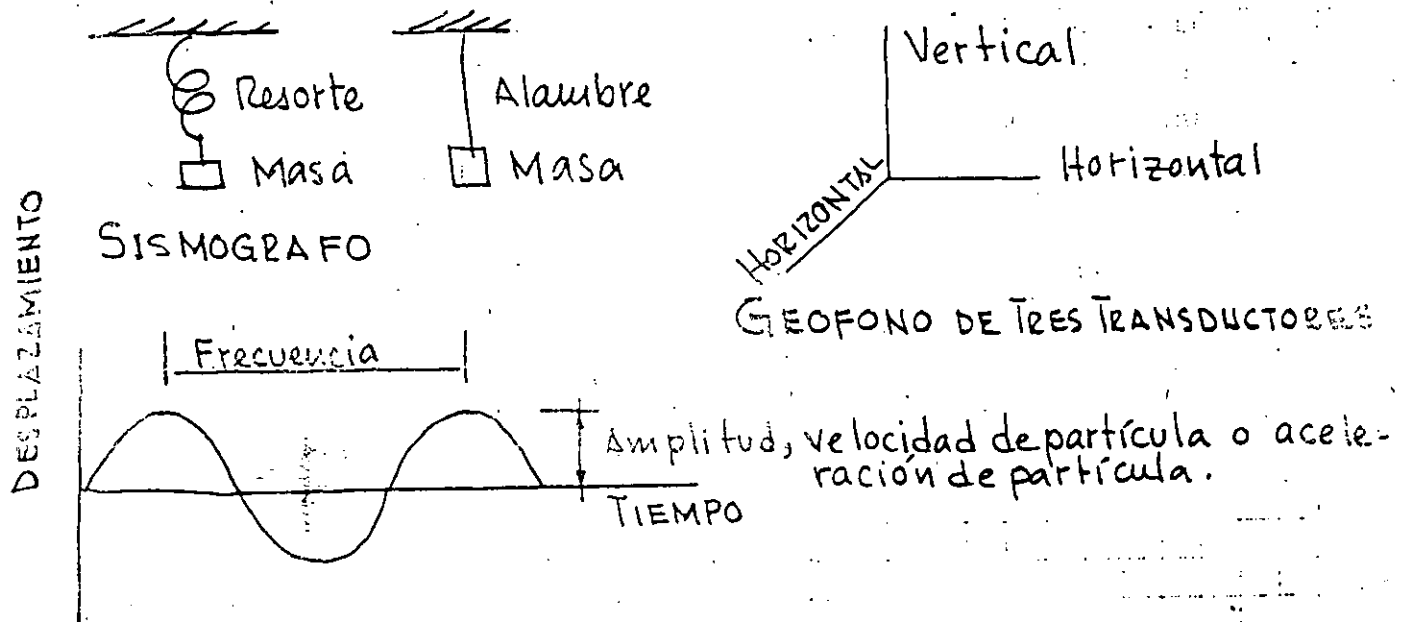 Resorte
Masa
Alambre
Masa
SISMOGRAFO
Vertical
Horizontal
HORIZONTAL
GEOFONO DE TRES TRANSDUCTORES
DESPLAZAMIENTO
Frecuencia
Amplitud, velocidad de partícula o acele-
ración de partícula.
TIEMPO